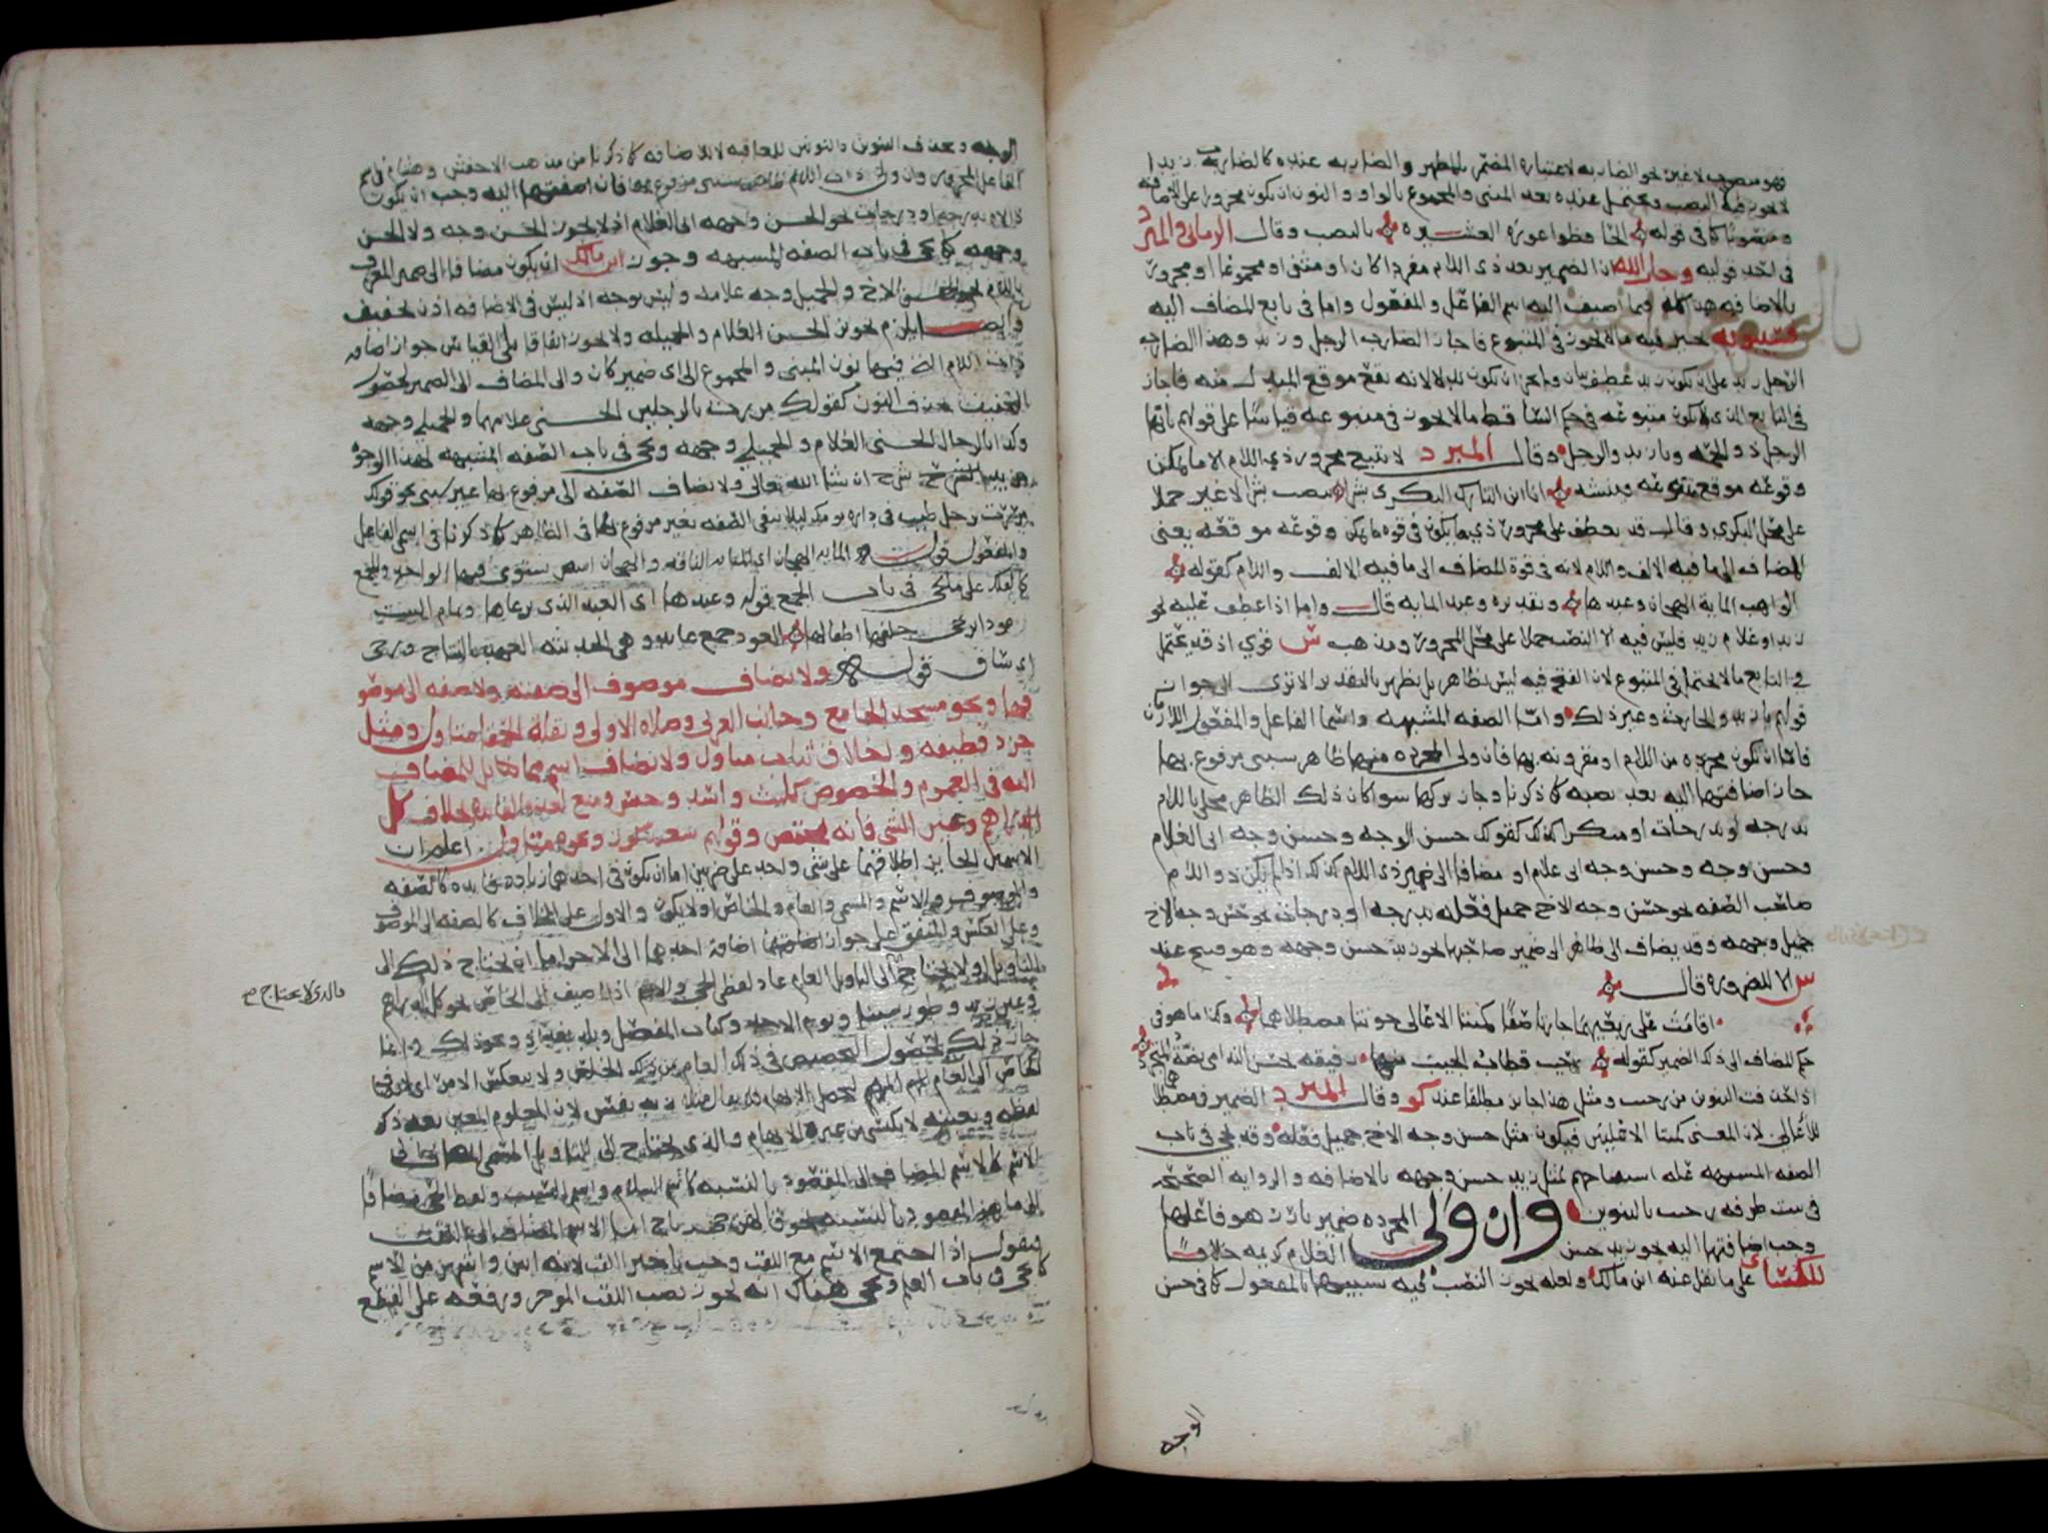 فهو منصوب لا غير نحو الضاربه لاعتباره المضمر بالمظهر والضاربه عنده كالضارب زيدا
لا يجوز فيه النصب ويحتمل عنده بعد المثنى والمجموع بالواو والنون ان يكون مجرورا على الاضافه
ومنصوبا كما في قوله الحافظوا عورة العشيره بالنصب وقال الرماني والمبرد
في احد قوليه وجار الله ان الضمير بعد ذي اللام مفردا كان او مثنى او مجموعا مجرور
بالاضافه هذا كله فيما اضيف اليه اسم الفاعل والمفعول واما في تابع المضاف اليه
فسيبويه يجيز فيه ما لا يجوز في المتبوع فاجاز الضارب الرجل وزيد وهذا الضارب
الرجل زيد على ان يكون زيد عطف بيان ولم يجز ان يكون بدلا لانه يقع موقع المبدل منه فاجاز
في التابع الذي لا يكون متبوعه في حكم الساقط ما لا يجوز في متبوعه قياسا على قولهم يا ايها
الرجل ذو الجمه ويا زيد والرجل وقال المبرد لا يتبع مجرور ذي اللام الا ما يمكن
وقوعه موقع متبوعه وينشد انا ابن التارك البكري بشرا بنصب بشر لا غير حملا
على محل البكري وقال قد يعطف على مجرور ذي اللام ما يكون في قوه ما يمكن وقوعه موقعه يعني
المضاف الى ما فيه الالف واللام لانه في قوة المضاف الى ما فيه الالف واللام كقوله
الواهب المايه الهجان وعبدها وتقديره وعبد المايه قال واما اذا عطف عليه نحو
زيد او غلام زيد فليس فيه الا النصب حملا على محل المجرور ومذهب س قوي اذ قد يحتمل
في التابع ما لا يحتمل في المتبوع لان القبح فيه ليس بظاهر بل يظهر بالتقدير الا ترى الى جواز
قولهم يا زيد والحارث وغير ذلك واما الصفه المشبهه واسما الفاعل والمفعول اللازمان
فاما ان تكون مجرده من اللام او مقرونه بها فان ولي المجرده منها ظاهر سببي مرفوع بها
جاز اضافتها اليه بعد نصبه كما ذكرنا وجاز تركها سوا كان ذلك الظاهر محلى باللام
بدرجه او بدرجات او منكرا كذلك كقولك حسن الوجه وحسن وجه ابي الغلام
وحسن وجه وحسن وجه ابي غلام او مضافا الى ضمير ذي اللام كذلك اذا لم يكن ذو اللام
صاحب الصفه نحو حسن وجه الاخ جميل فعله بدرجه او بدرجات نحو حسن وجه الاخ
جميل وجهه وقد يضاف الى ظاهر الى ضمير صاحبها نحو زيد حسن وجهه وهو قبيح عند
س الا للضروره قال
اقامت على ربعيهما جارتا صفا كميتا الاعالي جونتا مصطلاهما وكذا ما هو في
حكم المضاف الى ذلك الضمير كقوله رحيب قطاب الجيب منها رفيقه بجس الندامى بضة المتجرد
اذا حذفت التنوين من رحيب ومثل هذا جايز مطلقا عند كو وقال المبرد الضمير في مصطلاهما
للاعالي لان المعنى كميتا الاعليين فيكون مثل حسن وجه الاخ جميل فعله وقد يجي في باب
الصفه المشبهه علة استقباحهم لمثل زيد حسن وجهه بالاضافه والروايه الصحيحه
في بيت طرفه رحيب بالتنوين وان ولي المجرده ضمير بارز هو فاعلها
وجب اضافتها اليه نحو زيد حسن الغلام كريمه خلافا
للكسائي على ما نقل عنه ابن مالك ولعله يجوز النصب فيه تشبيها بالمفعول كما في حسن
الوجه
الوجه ويحذف التنوين والنون للمعاقبه لا للاضافه كما ذكرنا من مذهب الاخفش وهشام في اسم
الفاعل المجرد وان ولي ذات اللام ظاهر سببي مرفوع بها فان اضفتها اليه وجب ان يكون
ذا لام بدرجه او درجات نحو الحسن وجهه ابي الغلام اذ لا يجوز الحسن وجه ولا الحسن
وجهه كما يجي في باب الصفه المشبهه وجوز ابن مالك ان يكون مضافا الى ضمير المعرف
باللام نحو الحسن الاخ والجميل وجه غلامه وليس بوجه اذ ليس في الاضافه اذن تخفيف
وايضا يلزم تجويز الحسن الغلام والجميله ولا يجوز اتفاقا بلى القياس جواز اضافة
ذات اللام التي فيها نون المثنى والمجموع الى اي ضمير كان والى المضاف الى الضمير لحصول
التخفيف بحذف النون كقولك مررت بالرجلين الحسني غلامهما والجميلي وجهه
وكذا بالرجال الحسني الغلام والجميلي وجهه ويجي في باب الصفه المشبهه لهذا الوجوه
مزيد شرح ان شا الله تعالى ولا يضاف الصفه الى مرفوع بها غير سببي نحو قولك
مررت برجل طيب في داره نومك ليلا يبقى الصفه بغير مرفوع بها في الظاهر كما ذكرنا في اسم الفاعل
والمفعول قوله المايه الهجان اي المايه الناقه والهجان ابيض يستوي فيها الواحد والجمع
كالفلك على ما يجي في باب الجمع قوله وعبدها اي العبد الذي يرعاها وتمام البيت
عوذا تزجي خلفها اطفالها العوذ جمع عايذ وهي الحديثه العهد بالنتاج وتزجي
اي تساق قوله ولا يضاف موصوف الى صفته ولا صفه الى موصو
فها ونحو مسجد الجامع وجانب الغربي وصلاة الاولى وبقلة الحمقا متاول ومثل
جرد قطيفه واخلاق ثياب متاول ولا يضاف اسم مماثل للمضاف
اليه في العموم والخصوص كليث واسد وحبس ومنع لعدم الفايده بخلاف كل
الدراهم وعين الشي فانه يختص وقولهم سعيد كرز ونحوه متاول اعلم ان
الاسمين الجايز اطلاقهما على شي واحد على ضربين اما ان يكون في احدهما زيادة فايده كالصفه
والموصوف والاسم والمسمى والعام والخاص اولا يكون والاول على الخلاف كالصفه الى الموصوف
وعلى العكس والمتفق على جواز اضافة احدهما الى الاخر اما ان يحتاج ذلك الى
التاويل او لا يحتاج والذي لا يحتاج ح
جم الى التاويل العام عاد لفظي الحي والاسم اذا اضيف الى الخاص نحو كل الدراهم
وعين زيد وطور سينا ويوم الاحد وكتاب المفصل وبلد بغداد ونحو ذلك وانما
جاز ذلك لحصول التخصيص في ذلك العام من ذلك الخاص ولا ينعكس الامر اي لا يضاف
الخاص الى العام المبهم لتحصيل الابهام فلا يقال مثلا زيد نفس لان المعلوم المعين بعد ذكر
لفظه وتعيينه لا يكتسي من غيره الابهام والذي يحتاج الى التاويل المسمى المضاف الى
الاسم كالاسم المضاف الى المقصود بالنسبه كاسم السلام واسم الشيب ولفظ الحي مضافا
الى ما هو المقصود بالنسبه نحو قالهن حي رباح اما الاسم المضاف الى اللقب
فنقول اذا اجتمع الاسم مع اللقب وجب تاخير اللقب لانه ابين واشهر من الاسم
كما يجي في باب العلم ويجي هناك انه يجوز نصب اللقب الموخر ورفعه على القطع